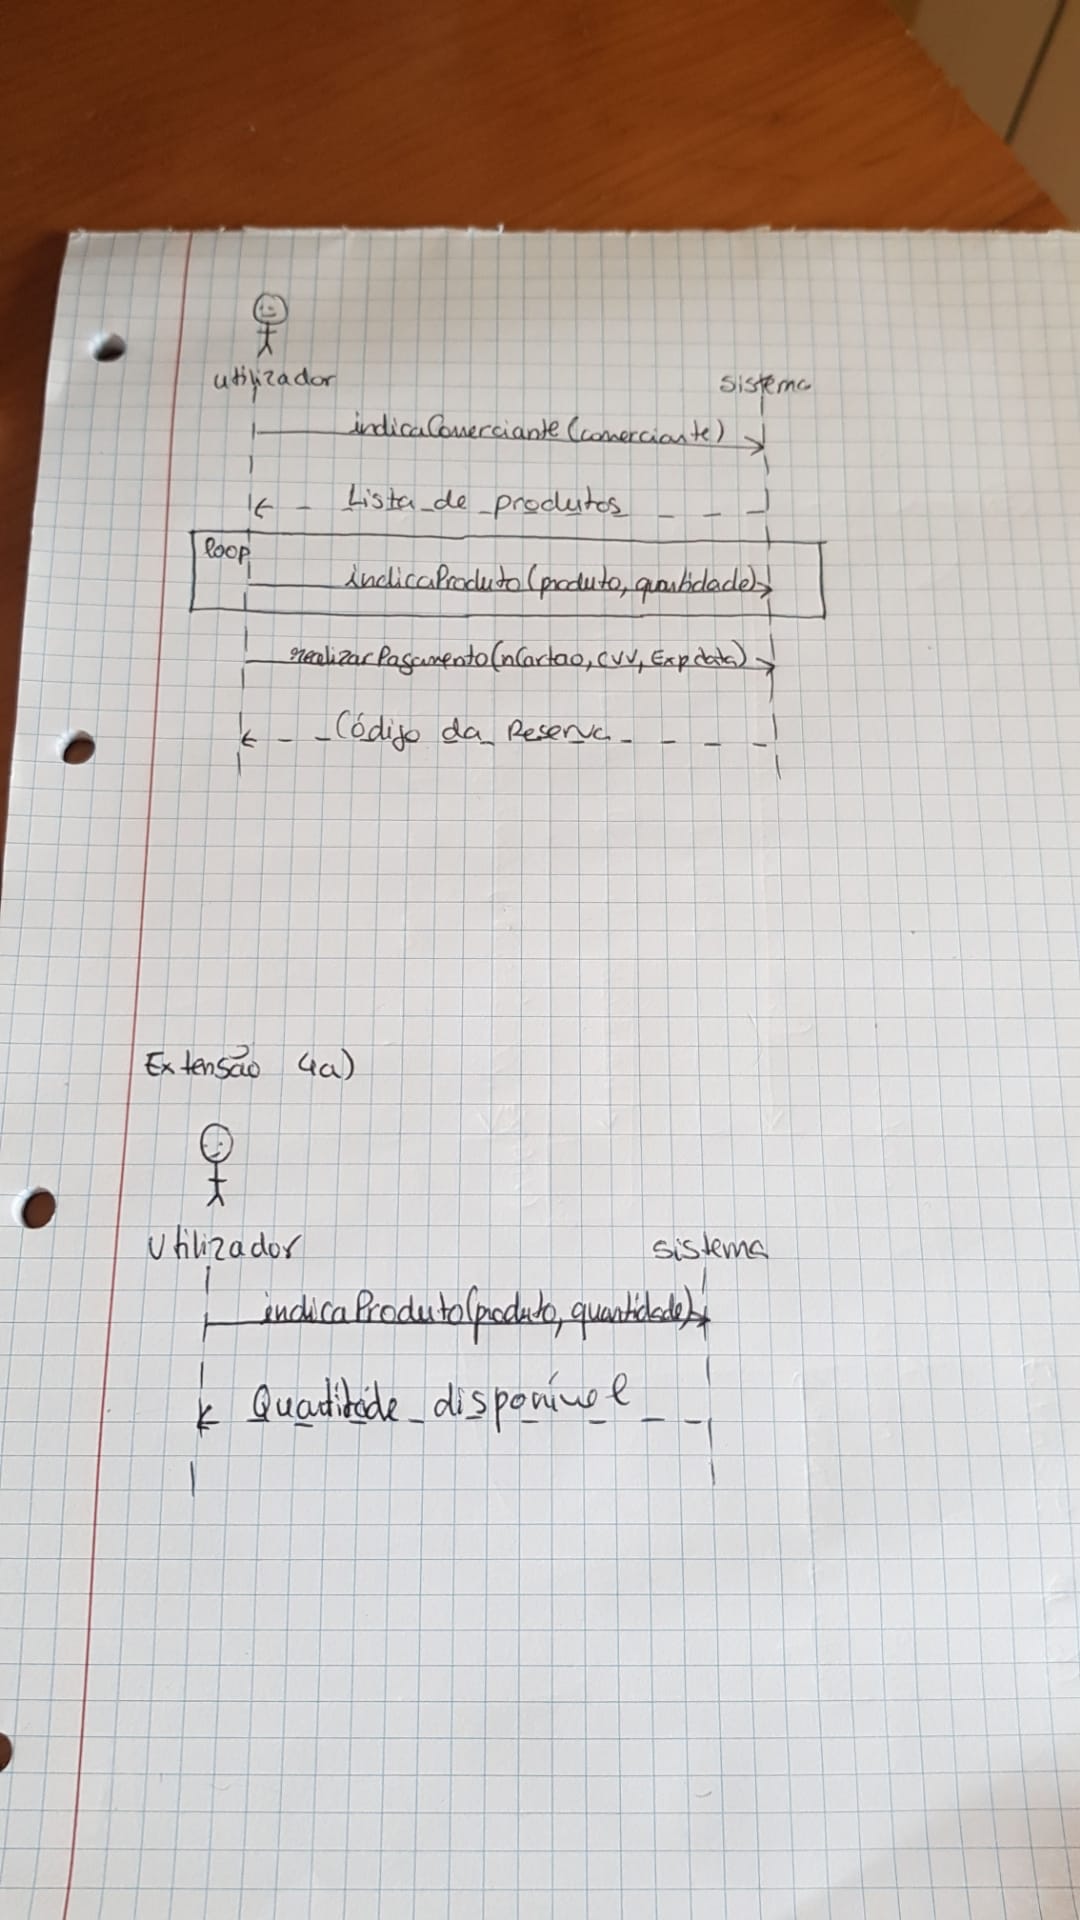 utilizador sistema
indicaComerciante(comerciante)
Lista de produtos
loop
indicaProduto(produto, quantidade)
realizarPagamento(nCartao, CVV, Expdata)
Código da Reserva
Extensão 4a)
Utilizador sistema
indicaProduto(produto, quantidade)
Quatidade disponível